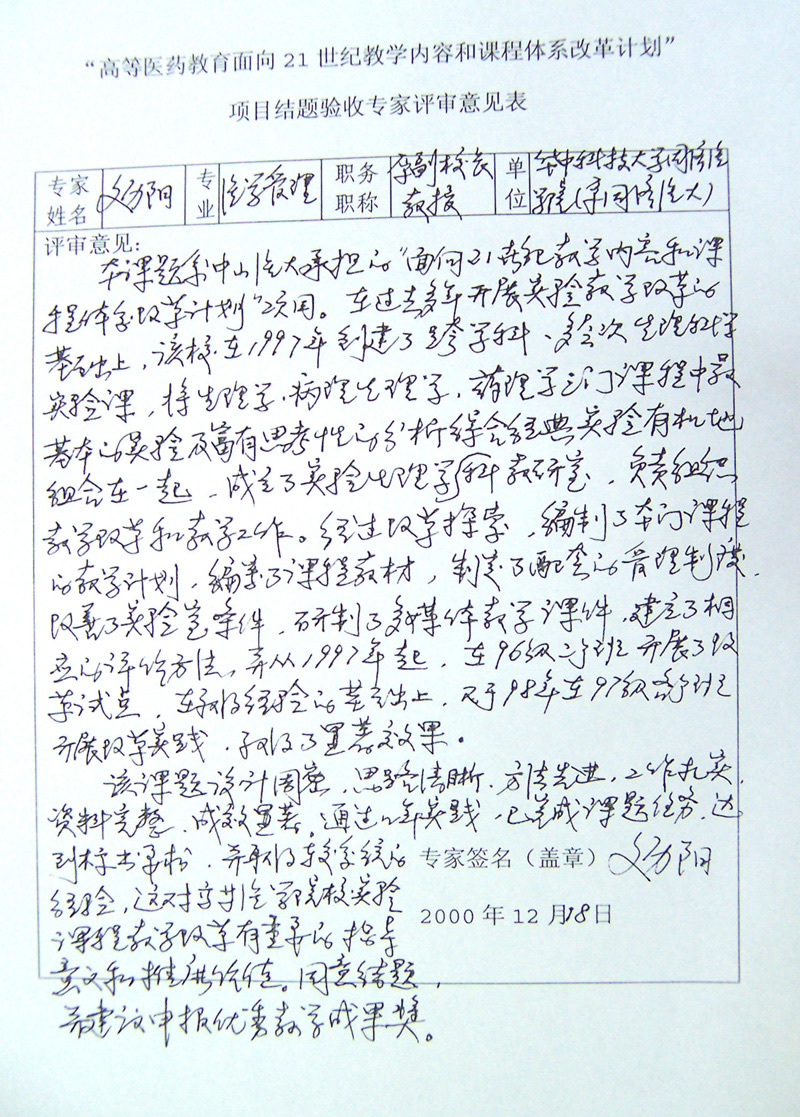 “高等医药教育面向 21 世纪教学内容和课程体系改革计划”
项目结题验收专家评审意见表
专家姓名 文历阳 专业 医学管理 职务职称 原副校长 教授 单位 华中科技大学同济医学院(原同济医大)
评审意见:
本课题系中山医大承担的“面向21世纪教学内容和课
程体系改革计划”项目。在过去多年开展实验教学改革的
基础上，该校在1997年创建了跨学科、多层次生理科学
实验课，将生理学、病理生理学、药理学三门课程中最
基本的实验及富有思考性的分析综合经典实验有机地
组合在一起，成立了实验生理学科教研室，负责组织
教学改革和教学工作。经过改革探索，编制了本门课程
的教学计划，编写了课程教材，制定了配套的管理制度，
改善了实验室条件，研制了多媒体教学课件，建立了相
应的评价方法，并从1997年起，在96级二个班开展了改
革试点，在取得经验的基础上，又于98年在97级各班
开展改革实践，取得了显著效果。
该课题设计周密，思路清晰，方法先进，工作扎实，
资料完整，成效显著。通过几年实践，已完成课题任务，达
到标书要求，并取得较系统的
经验，这对于高等医学院校实验
课程教学改革有重要的指导
意义和推广价值。同意结题，
并建议申报优秀教学成果奖。
专家签名（盖章） 文历阳
2000 年 12 月 18 日